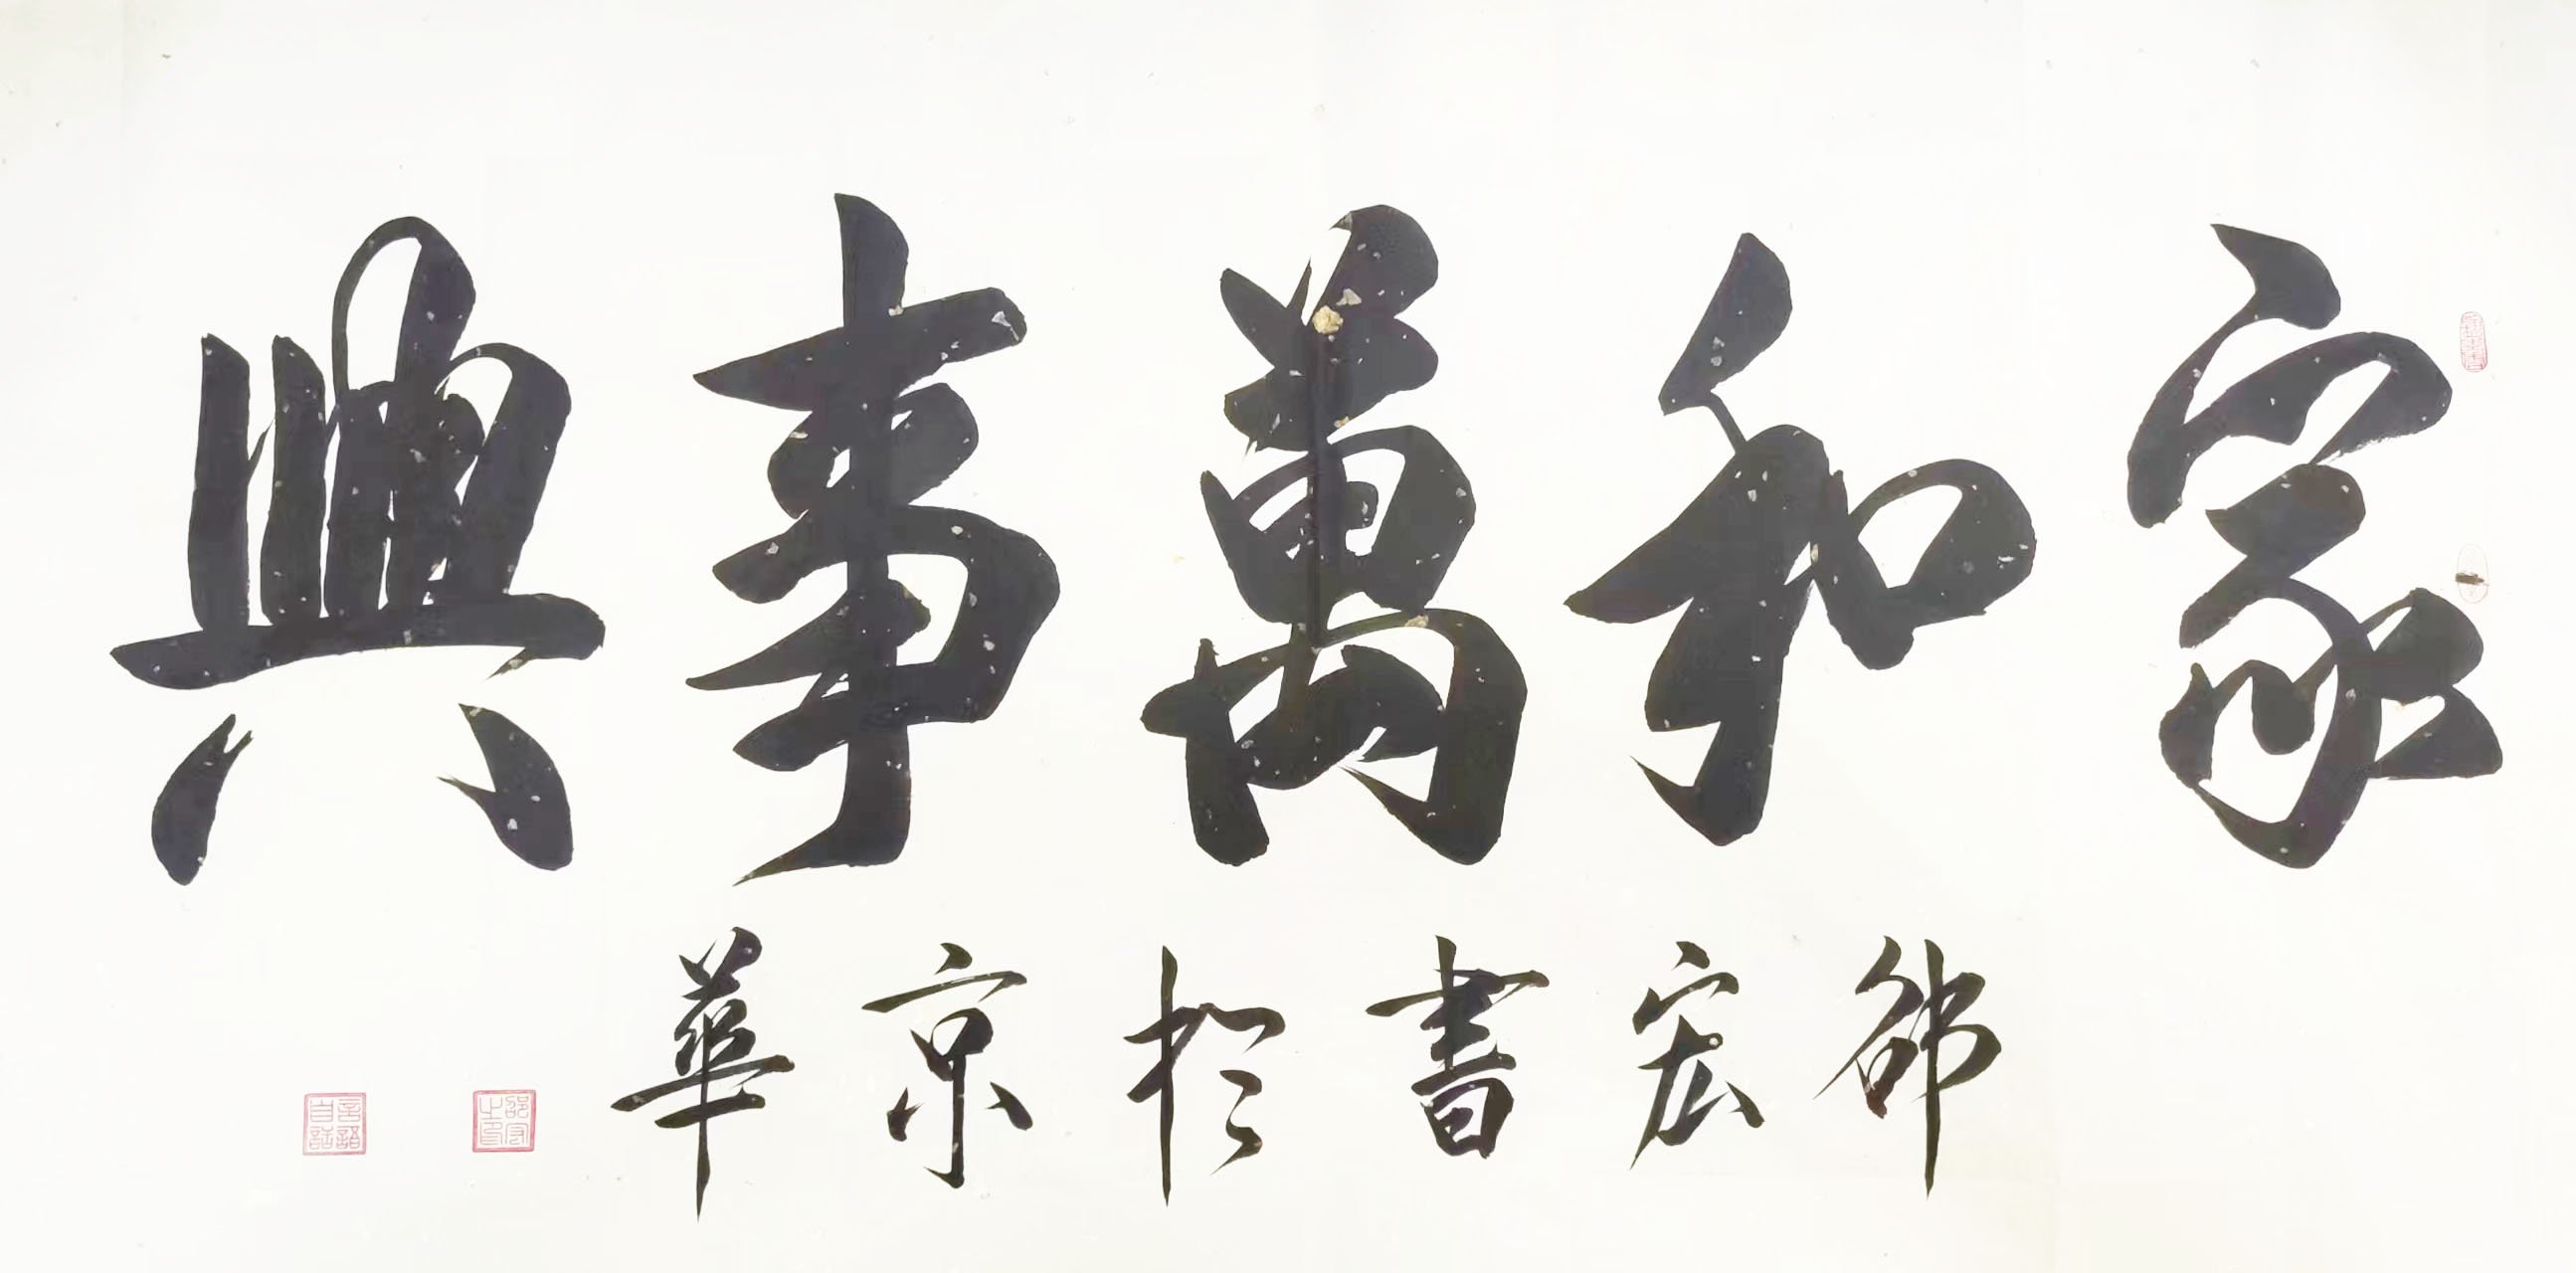 家和萬事興
邵宏書於京華